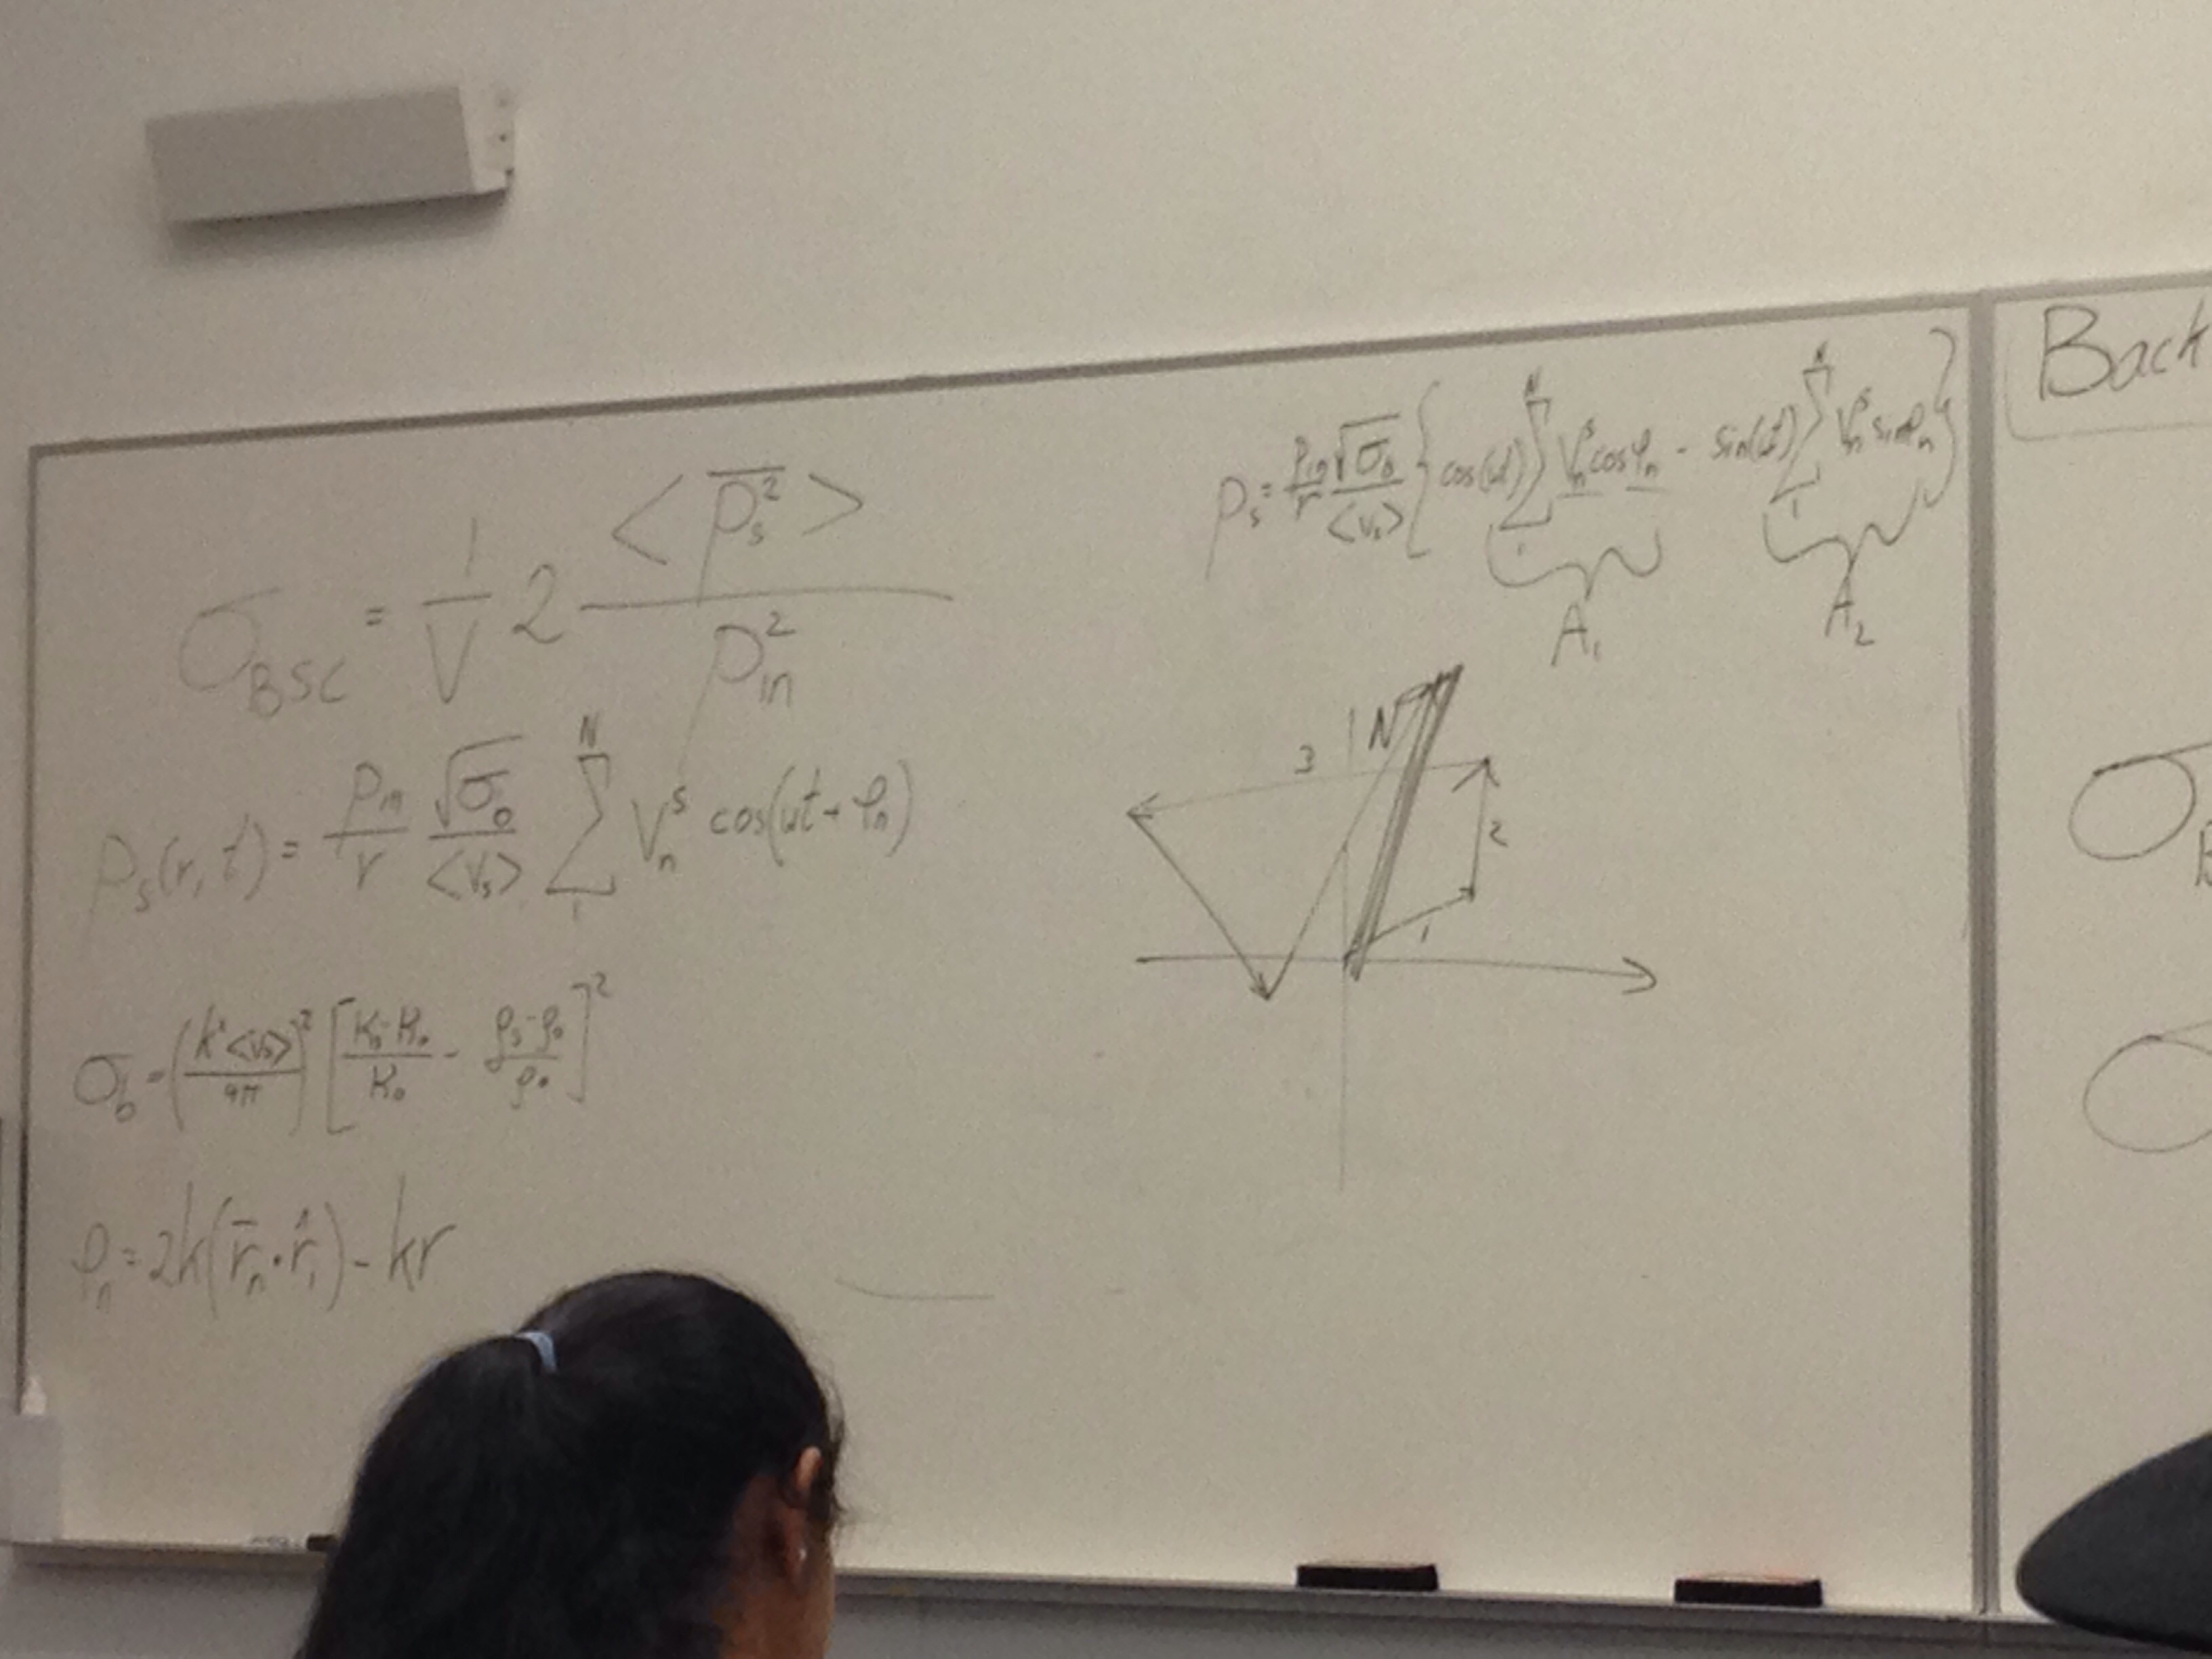 σ_BSC = 1/V 2 <\overline{p_s^2}> / p_in^2
p_s(r, t) = p_in/r √σ_b/<V_s> Σ_1^N V_n^s cos(ωt + φ_n)
σ_b = (k^2<V_s>/4π)^2 [K_s-K_o/K_o - ρ_s-ρ_o/ρ_o]^2
φ_n = 2k(\bar{r}_n · \hat{r}_i) - kr
p_s = p_in/r √σ_b/<V_s> {cos(ωt) Σ_1^N V_n^s cosφ_n - sin(ωt) Σ_1^N V_n^s sinφ_n}
A_1 A_2
3 N
2
1
Back
σ_B